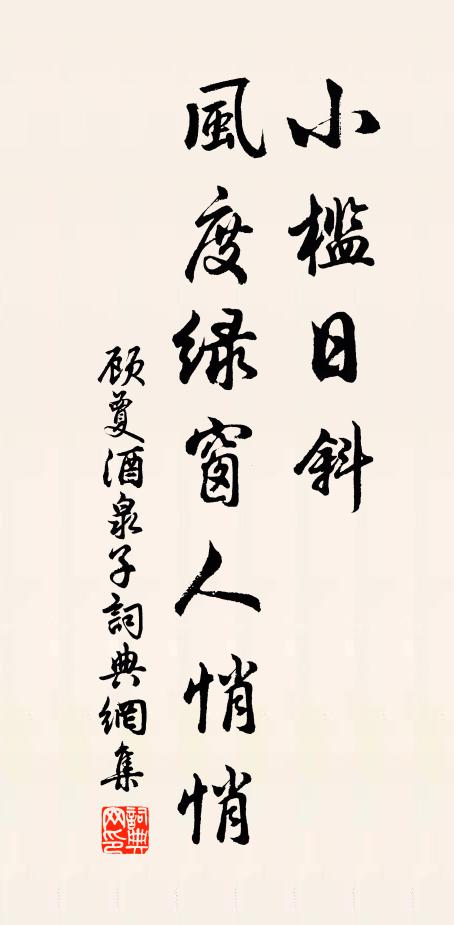 小檻日斜
風度绿窗人悄悄
顾夐酒泉子詞典網集
詞典網印